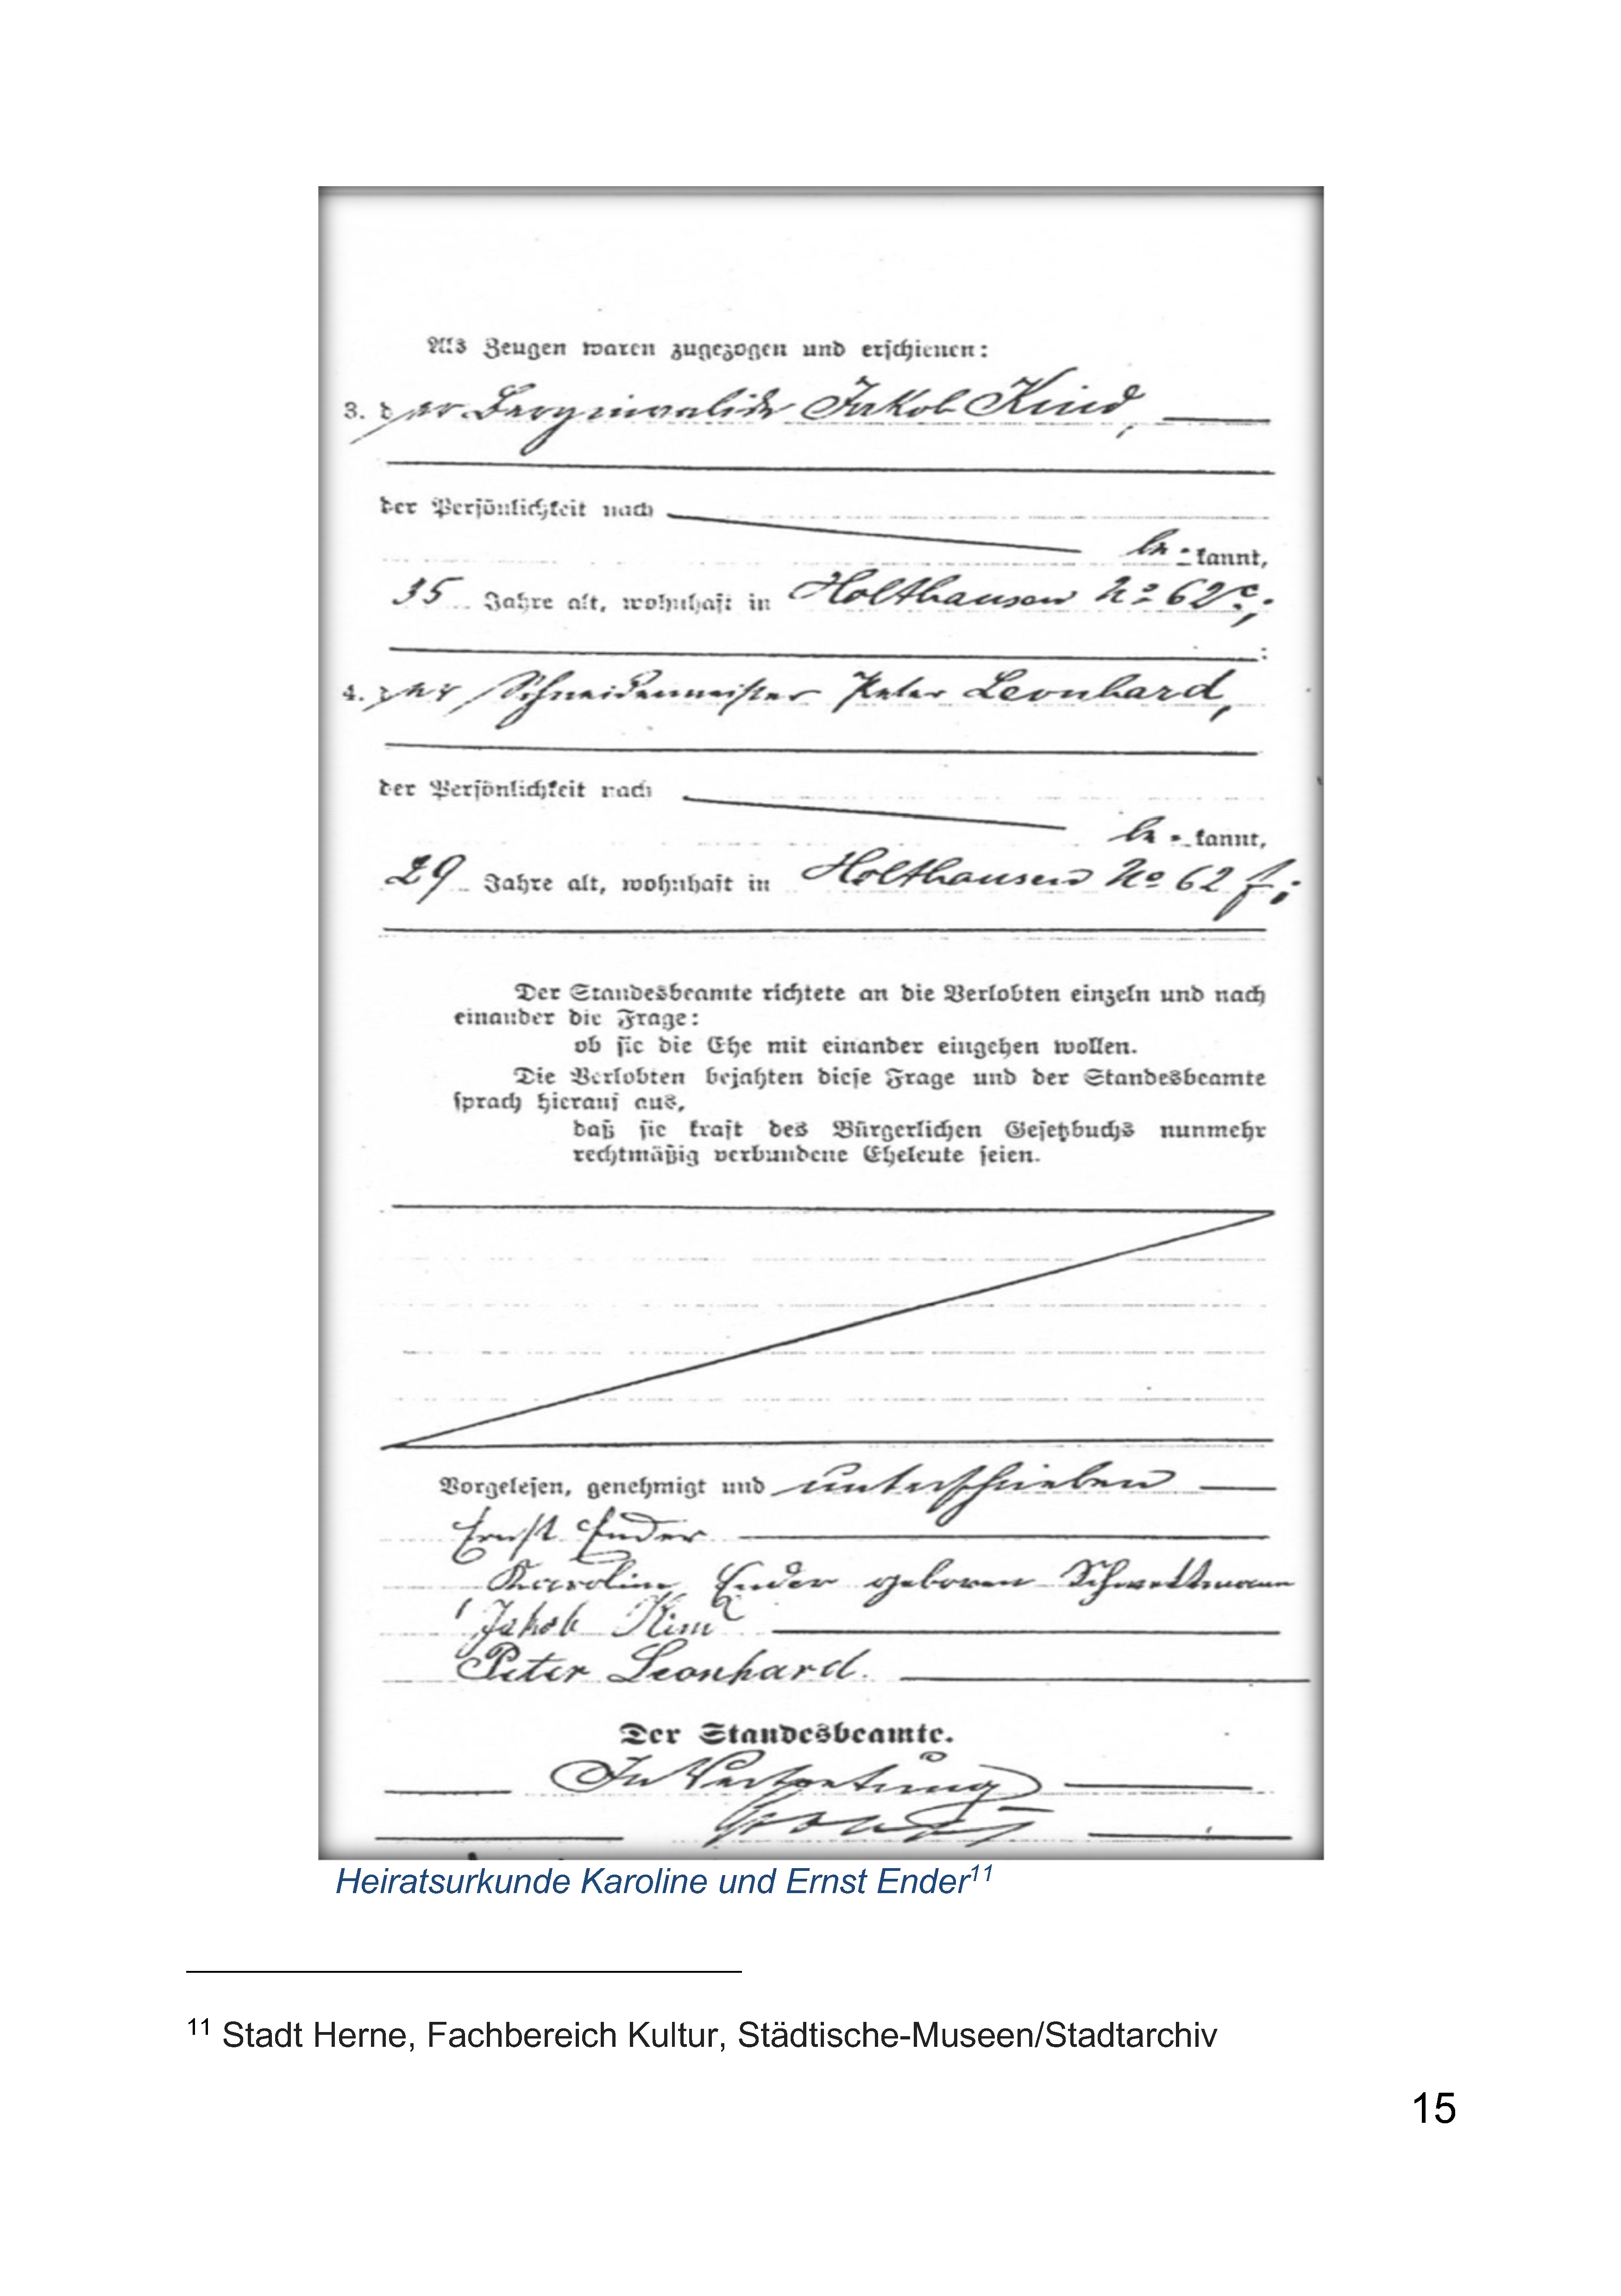 Als Zeugen waren zugezogen und erschienen:
3. der Berginvalide Jakob Kind,
der Persönlichkeit nach
be kannt,
35 Jahre alt, wohnhaft in Holthausen No 62c;
4. der Schneidermeister Peter Leonhard,
der Persönlichkeit nach
be kannt,
29 Jahre alt, wohnhaft in Holthausen No 62 f;
Der Standesbeamte richtete an die Verlobten einzeln und nach
einander die Frage:
ob sie die Ehe mit einander eingehen wollen.
Die Verlobten bejahten diese Frage und der Standesbeamte
sprach hierauf aus,
daß sie kraft des Bürgerlichen Gesetzbuchs nunmehr
rechtmäßig verbundene Eheleute seien.
Vorgelesen, genehmigt und unterschrieben
Ernst Ender
Karoline Ender geboren Schwettmann
Jakob Kind
Peter Leonhard.
Der Standesbeamte.
In Vertretung
Heiratsurkunde Karoline und Ernst Ender11
11 Stadt Herne, Fachbereich Kultur, Städtische-Museen/Stadtarchiv
15